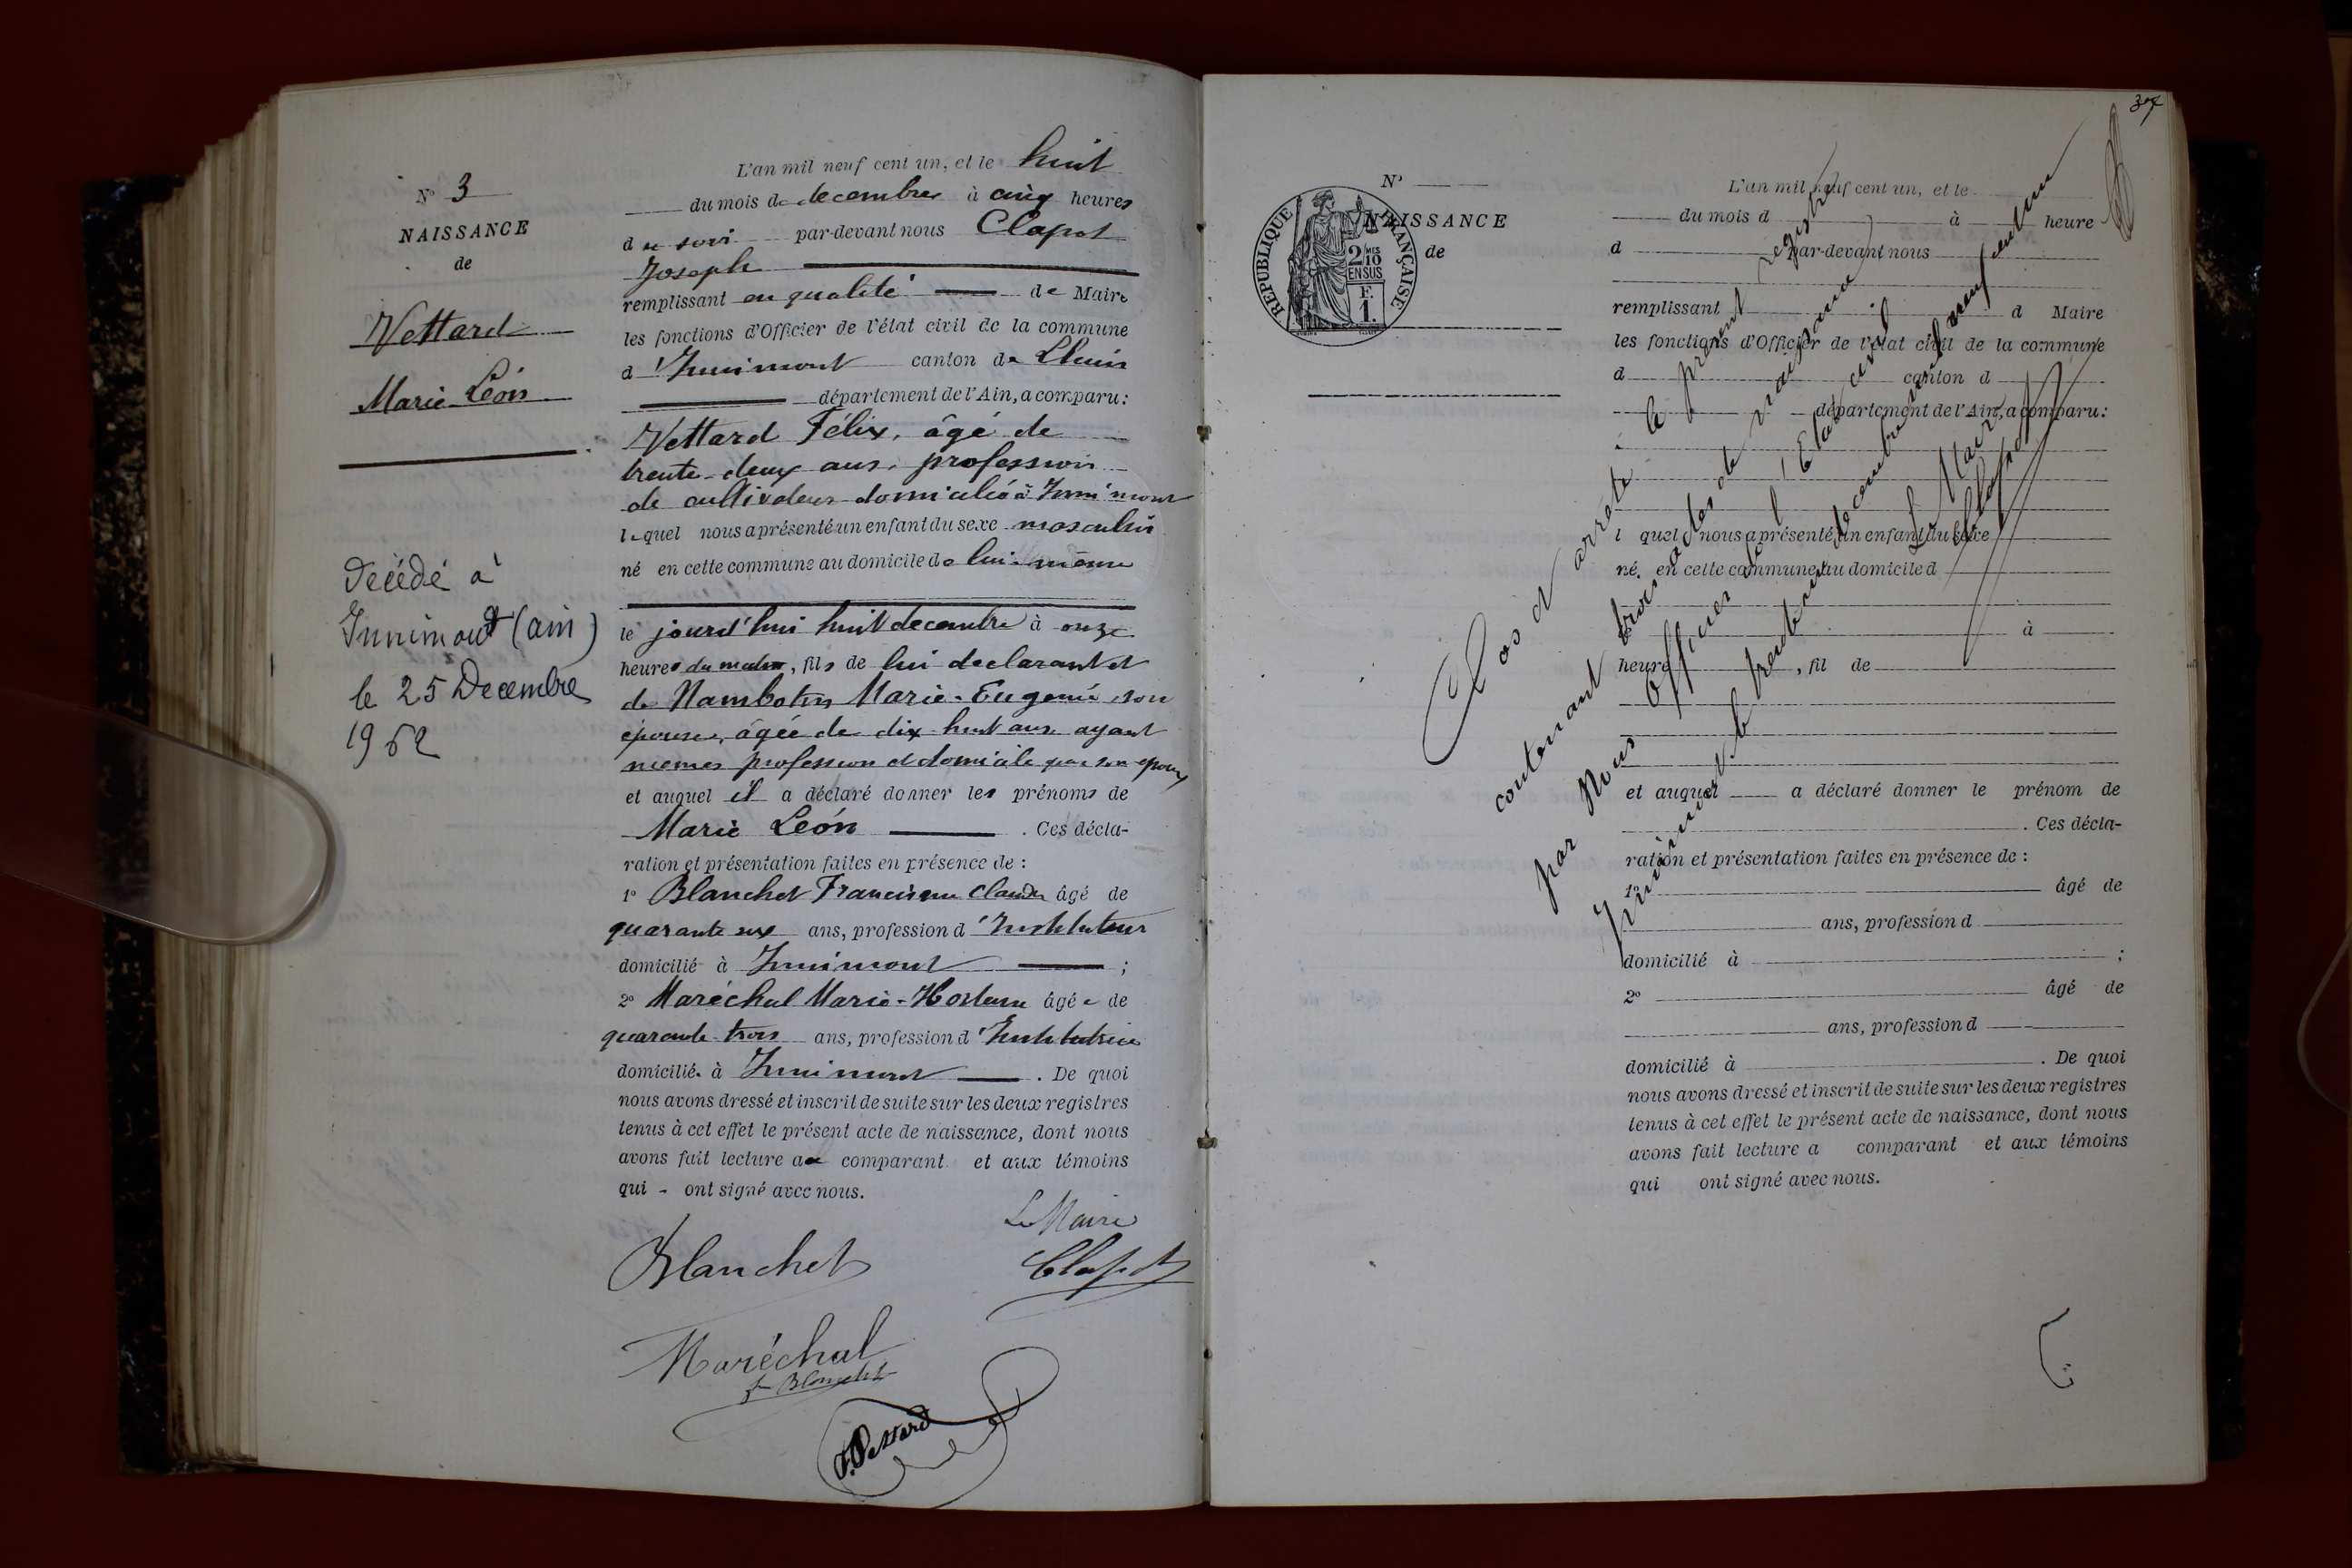 N° 3
NAISSANCE
de
Vettard
Marie Léon
Décédé à
Innimont (ain)
le 25 Decembre
1962
L'an mil neuf cent un, et le huit
du mois de decembre à cinq heures
du soir par-devant nous Clapot
Joseph
remplissant en qualité de Maire
les fonctions d'Officier de l'état civil de la commune
d'Innimont canton de Lhuis
département de l'Ain, a comparu:
Vettard Félix, âgé de
trente-deux ans, profession
de cultivateur domicilié à Innimont
lequel nous a présenté un enfant du sexe masculin
né en cette commune au domicile de lui-même
le jourd'hui huit decembre à onze
heures du matin, fils de lui declarant et
de Nambotin Marie-Eugenie son
épouse, âgée de dix-huit ans ayant
mêmes profession et domicile que son epoux
et auquel il a déclaré donner les prénoms de
Marie Léon. Ces décla-
ration et présentation faites en présence de :
1° Blanchet Claude âgé de
quarante six ans, profession d'Instituteur
domicilié à Innimont ;
2° Maréchal Marie-Hortense âgée de
quarante-trois ans, profession d'Institutrice
domiciliée à Innimont. De quoi
nous avons dressé et inscrit de suite sur les deux registres
tenus à cet effet le présent acte de naissance, dont nous
avons fait lecture au comparant et aux témoins
qui - ont signé avec nous.
Le Maire
Blanchet
Clapot
Maréchal
f Blanchet
F. Vettard
37
N°
NAISSANCE
de
RÉPUBLIQUE FRANÇAISE
2 MES
10
EN SUS
F.
1.
L'an mil neuf cent un, et le
du mois d à heure
d par-devant nous
remplissant d Maire
les fonctions d'Officier de l'état civil de la commune
d canton d
département de l'Ain, a comparu:
l quel nous a présenté un enfant du sexe
né en cette commune au domicile d
à
heure , fil de
et auquel a déclaré donner le prénom de
. Ces décla-
ration et présentation faites en présence de :
1° âgé de
ans, profession d
domicilié à ;
2° âgé de
ans, profession d
domicilié à . De quoi
nous avons dressé et inscrit de suite sur les deux registres
tenus à cet effet le présent acte de naissance, dont nous
avons fait lecture a comparant et aux témoins
qui ont signé avec nous.
Clos et arrêté le présent registre
contenant trois actes de naissance
par Nous Officier de l'Etat civil
Innimont le trente un decembre mil neuf cent un
Le Maire
Clapot